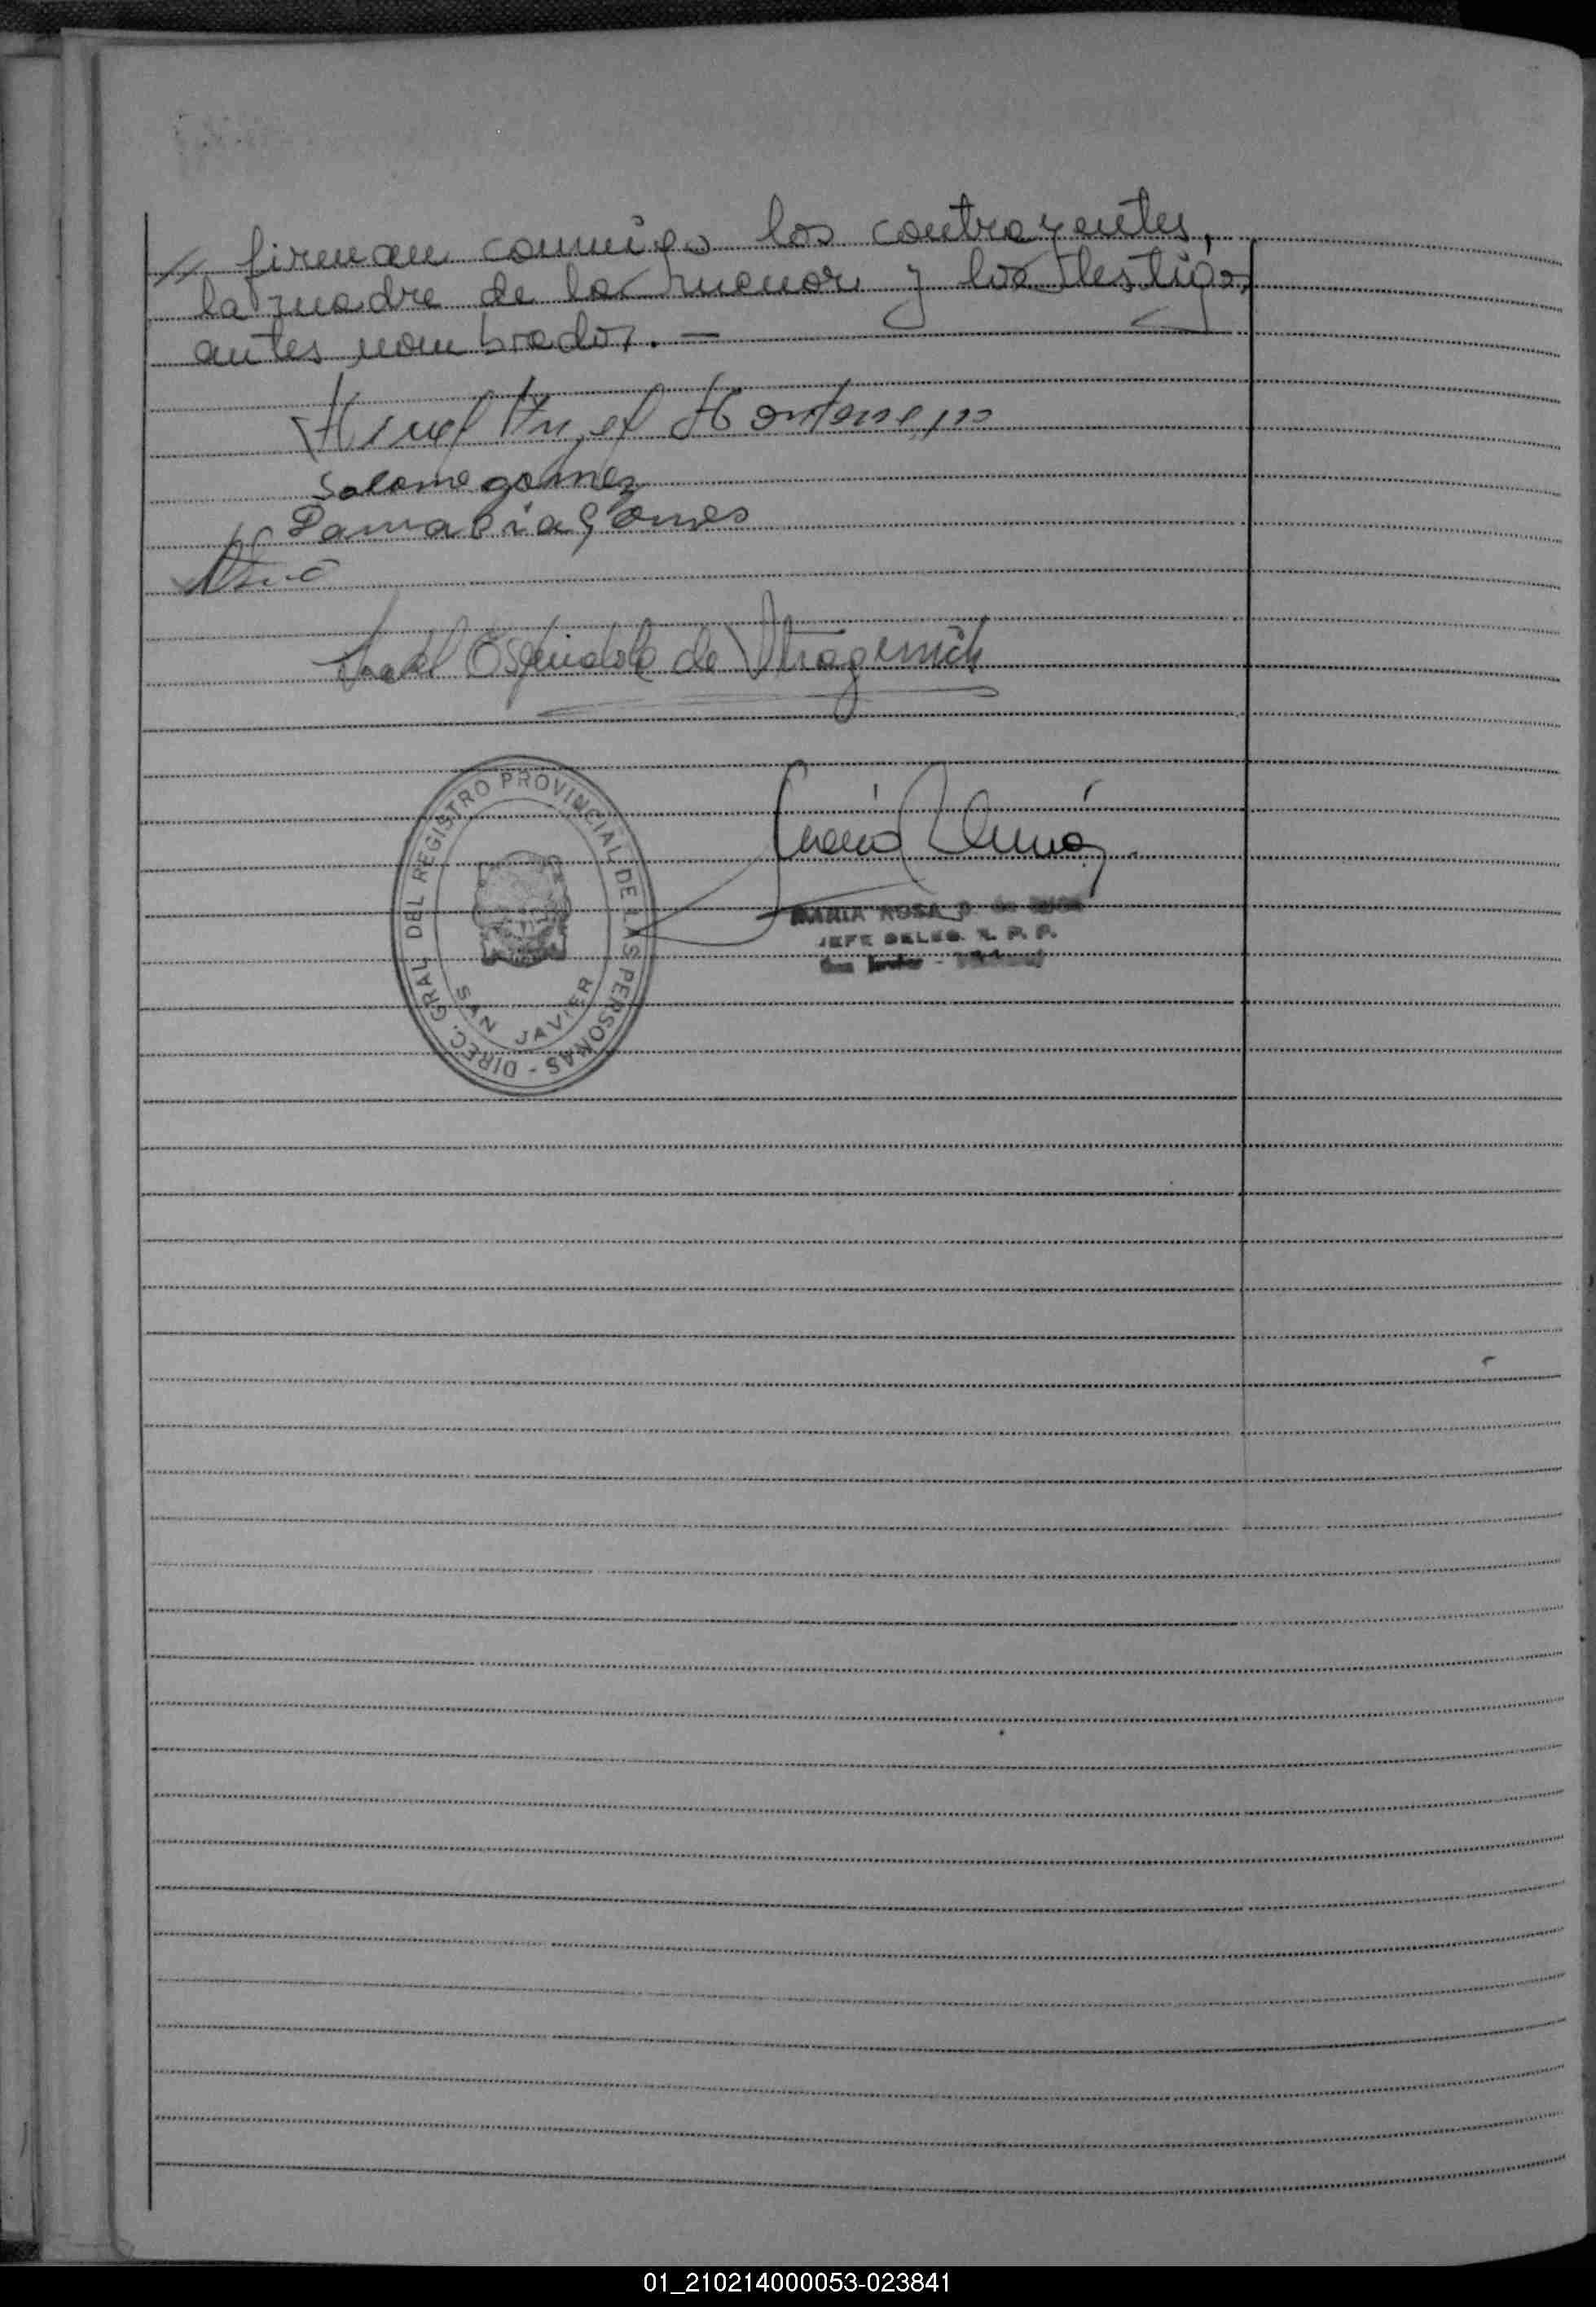 // firman conmigo los contrayentes,
la madre de la menor y los testigos
antes nombrados. —
Salome gomez
Damacia Gomes
Espindola de
DIREC. GRAL. DEL REGISTRO PROVINCIAL DE LAS PERSONAS -
SAN JAVIER
MARIA ROSA
JEFE DELEG. R. P. P.
01_210214000053-023841